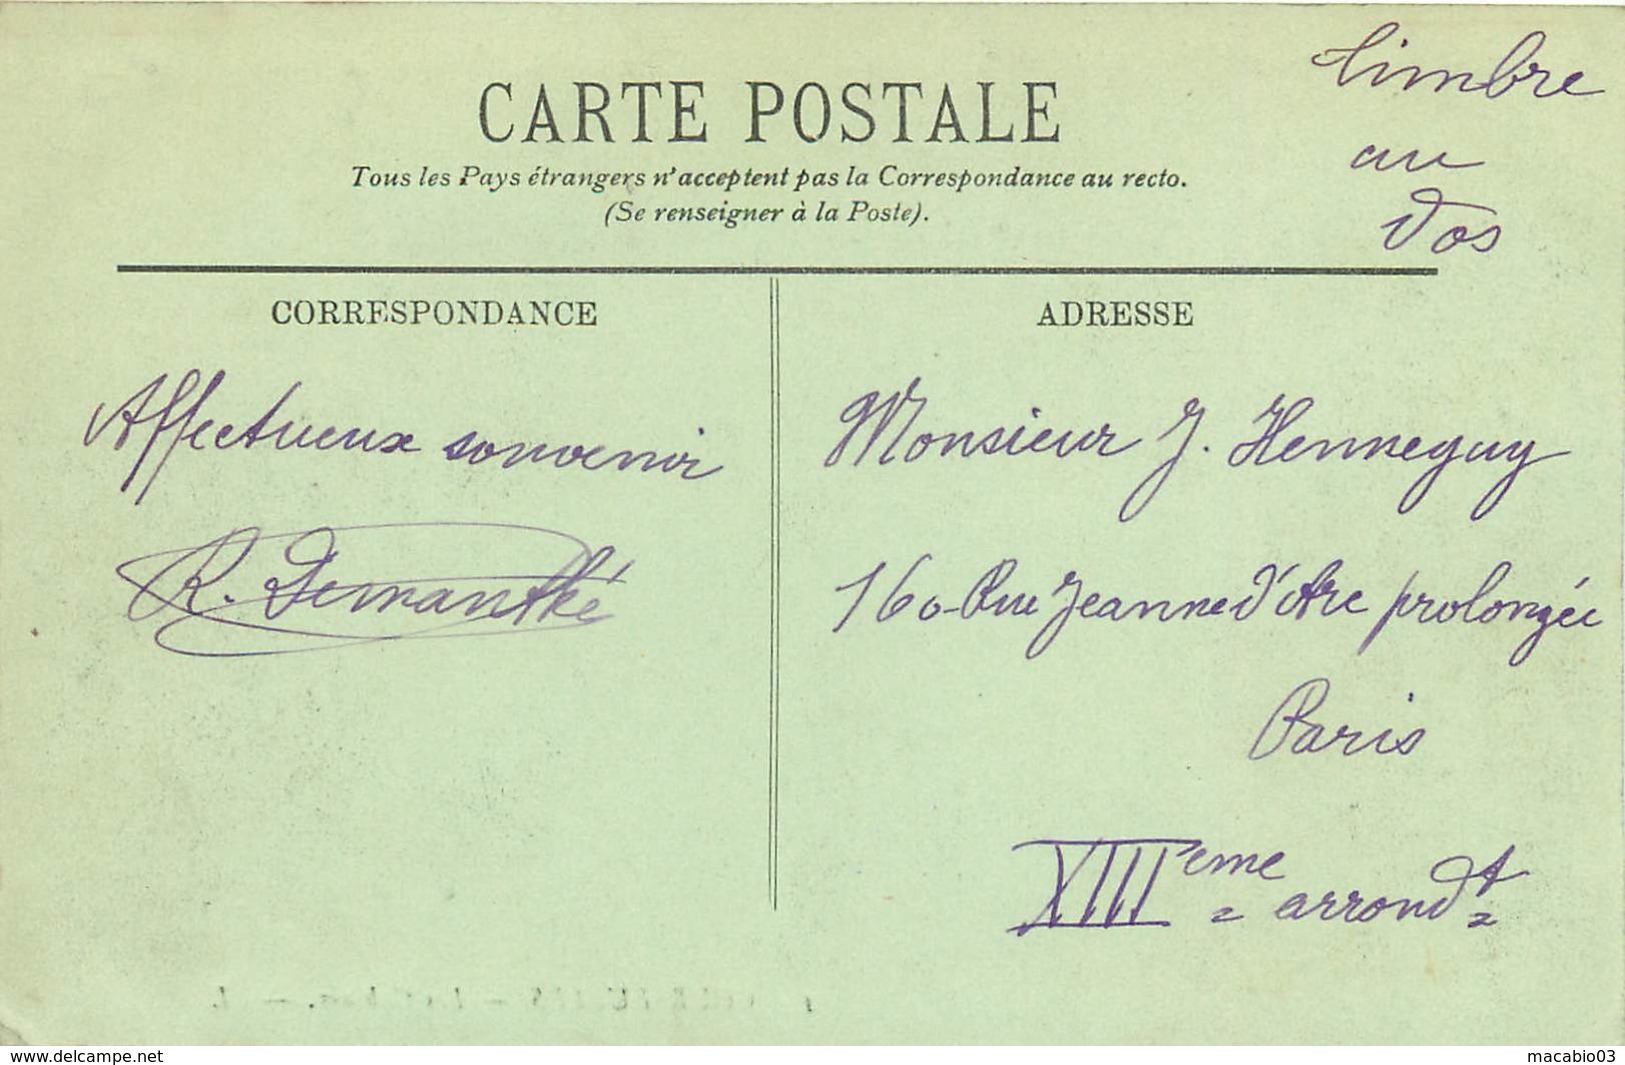 CARTE POSTALE
Tous les Pays étrangers n'acceptent pas la Correspondance au recto.
(Se renseigner à la Poste).
timbre
au
dos
CORRESPONDANCE
Affectueux souvenir
R. Demanthé
ADRESSE
Monsieur J. Henneguy
160 Rue Jeanne d'Arc prolongée
Paris
XIIIeme arrondt
www.delcampe.net
macabio03